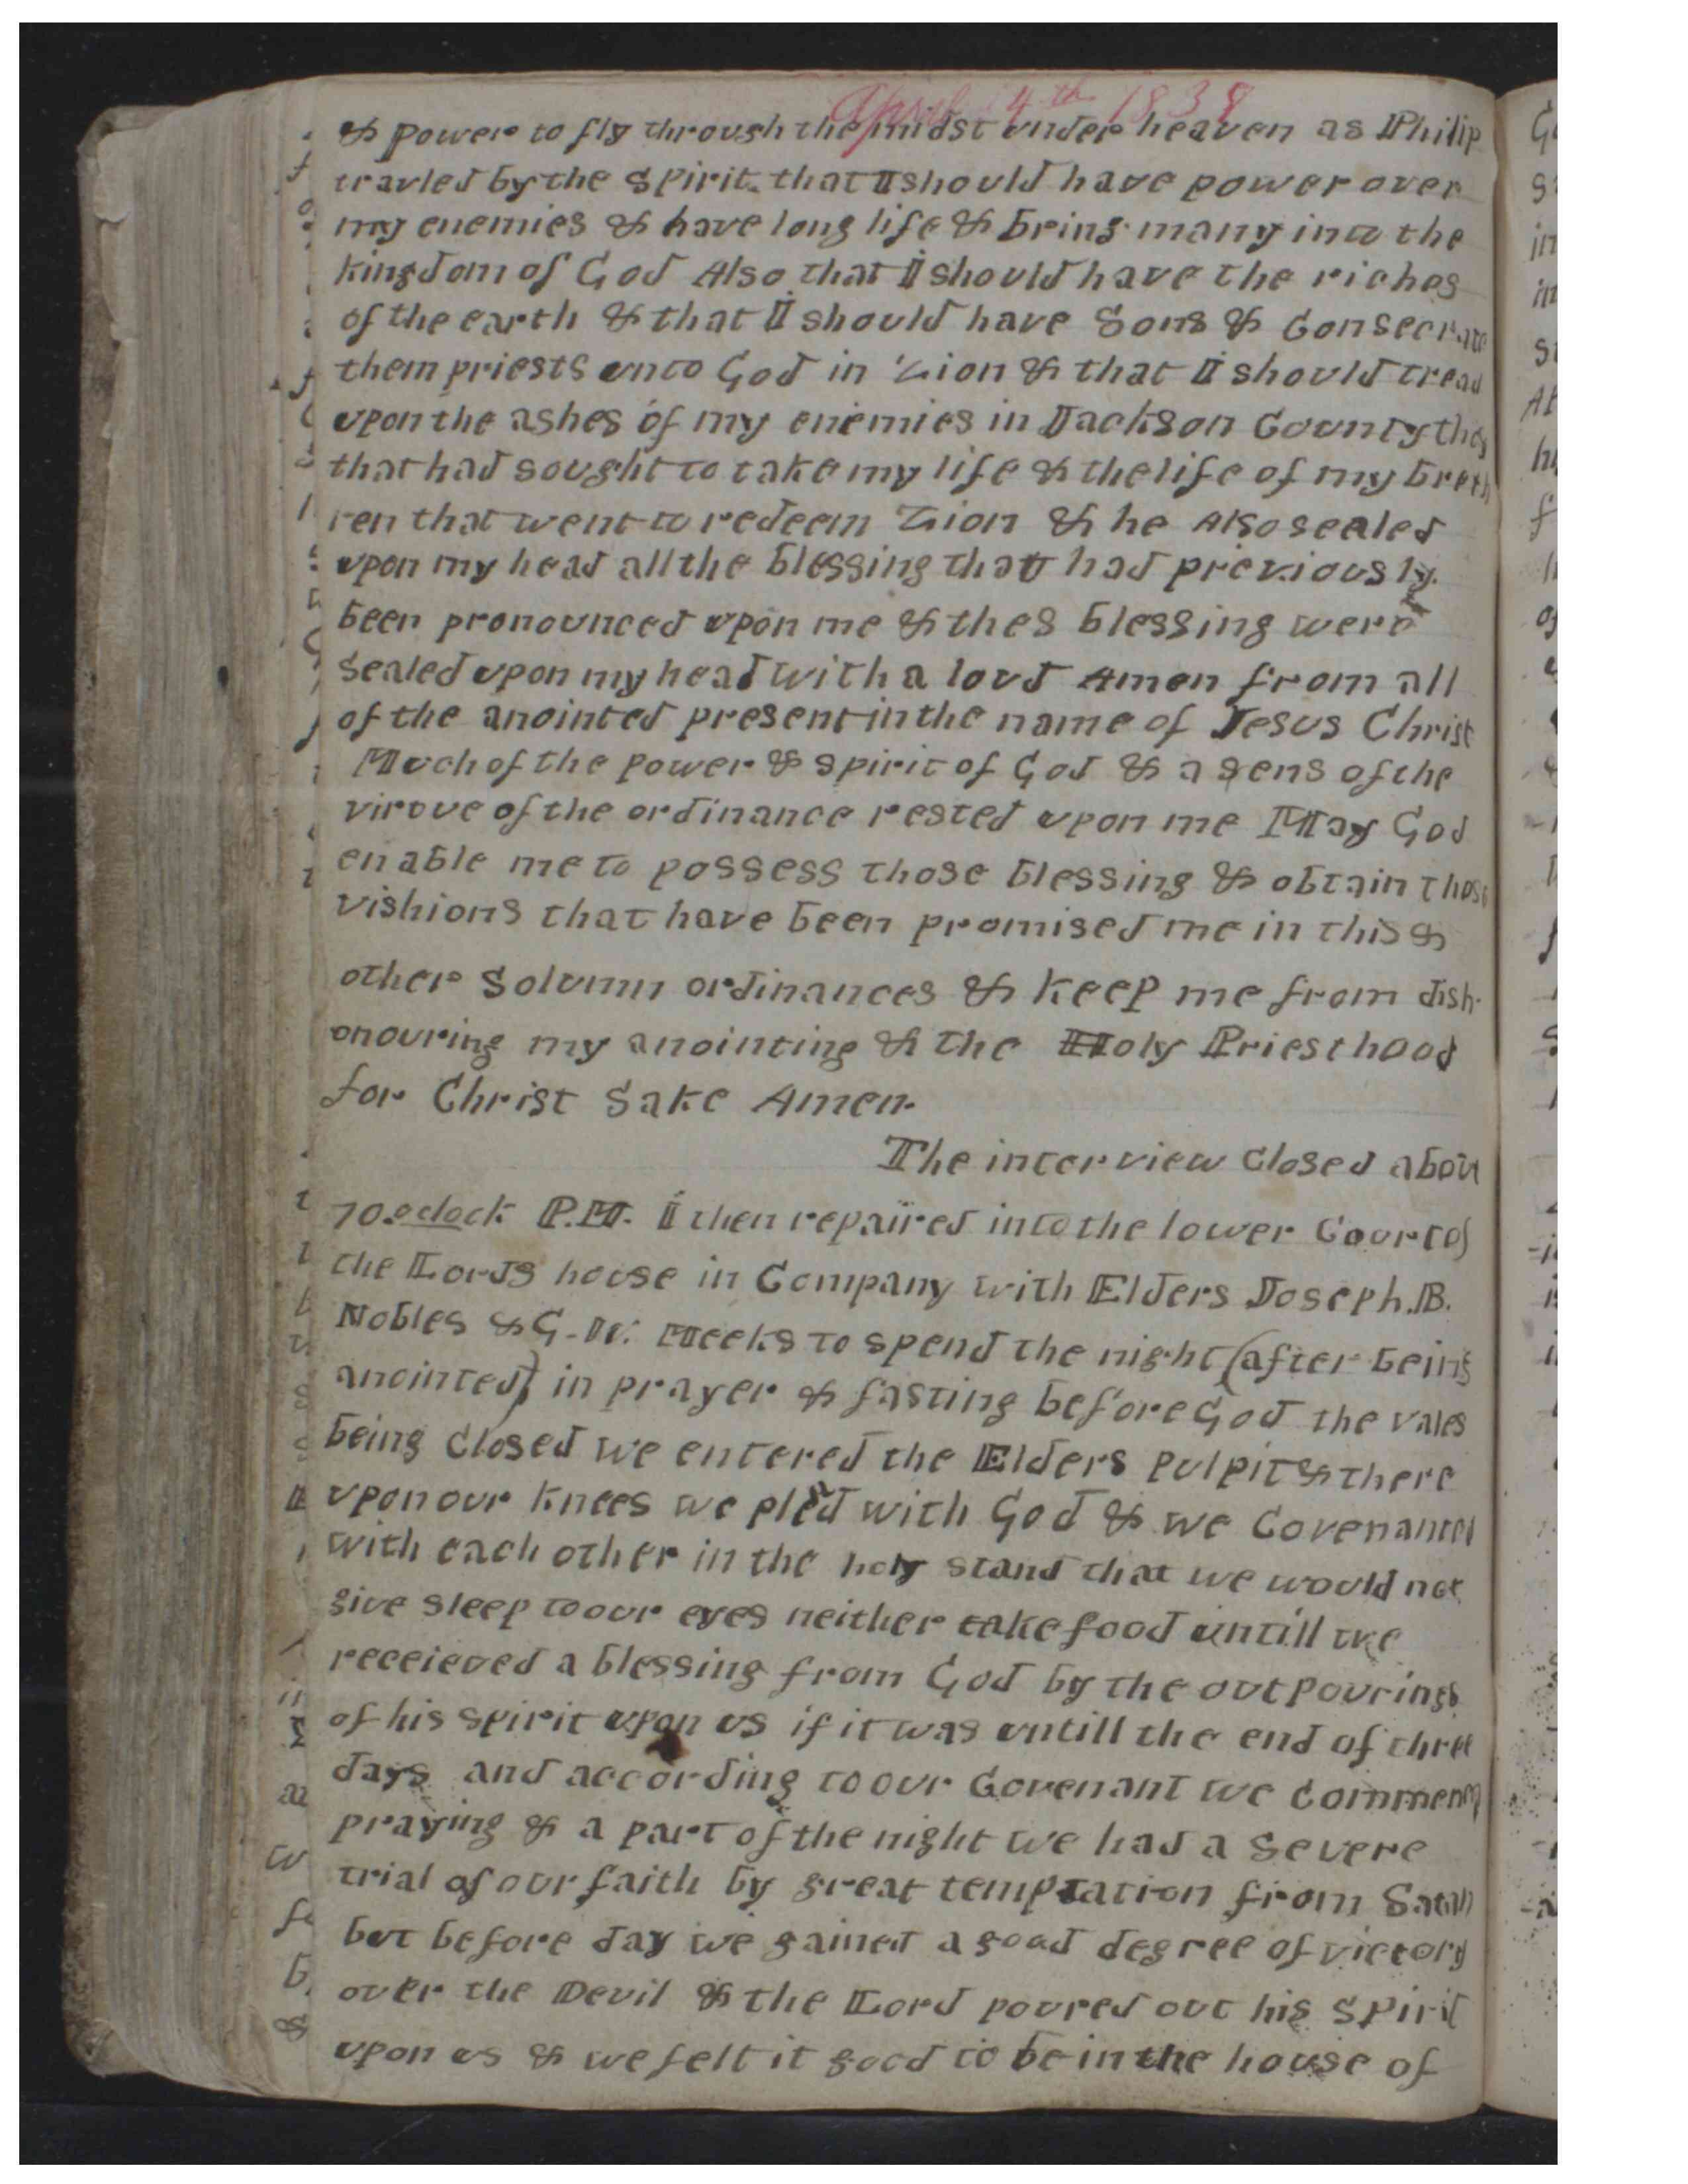 April 4th 1837
& power to fly through the midst under heaven as Philip
travled by the spirit. that I should have power over
my enemies & have long life & bring many into the
kingdom of God Also that I should have the riches
of the earth & that I should have Sons & Consecrate
them priests unto God in Zion & that I should tread
upon the ashes of my enemies in Jackson County they
that had sought to take my life & the life of my breth
ren that went to redeem Zion & he Also sealed
upon my head all the blessing that had previously
been pronounced upon me & thes blessing were
Sealed upon my head with a loud Amen from all
of the anointed present in the name of Jesus Christ
Much of the power & spirit of God & a sens of the
virtue of the ordinance rested upon me May God
enable me to possess those blessing & obtain those
vishions that have been promised me in this &
other Solumn ordinances & Keep me from dish-
onouring my anointing & the Holy Priesthood
for Christ Sake Amen.
The interview Closed about
10.oclock P.M. I then repaired into the lower Court of
the Lords house in Company with Elders Joseph.B.
Nobles & G.W. Meeks to spend the night (after being
anointed) in prayer & fasting before God the vales
being Closed we entered the Elders pulpit & there
upon our knees we plead with God & we Covenanted
with each other in the holy stand that we would not
give sleep to our eyes neither take food untill we
receieved a blessing from God by the outpourings
of his spirit upon us if it was untill the end of three
days and according to our Covenant we Commenced
praying & a part of the night we had a Severe
trial of our faith by great temptation from Satan
but before day we gained a good degree of victory
over the Devil & the Lord poured out his Spirit
upon us & we felt it good to be in the house of